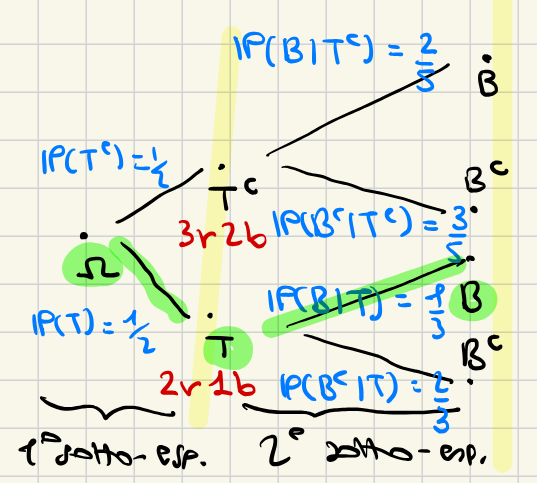 IP(B|Tᶜ) = 2/5
B
IP(Tᶜ) = 1/2
Tᶜ
Bᶜ
3r 2b
IP(Bᶜ|Tᶜ) = 3/5
Ω
IP(B|T) = 1/3
B
IP(T) = 1/2
T
Bᶜ
2r 1b
IP(Bᶜ|T) = 2/3
1° sotto-esp.
2° sotto-esp.